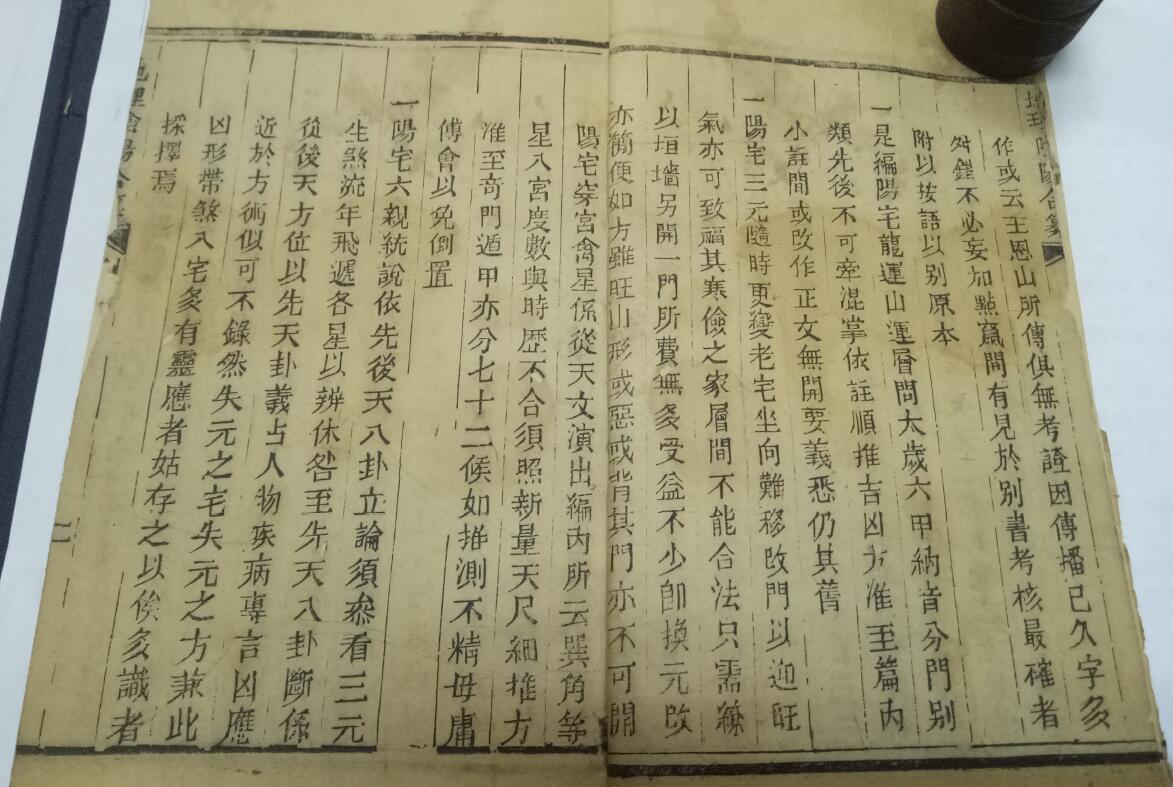 作或云王恩山所傳俱無考證因傳播已久字多
舛錯不必妄加點竄間有見於别書考核最確者
附以按語以别原本
一是編陽宅龍運山運層間太歲六甲納音分門别
類先後不可牽混掌依註順推吉凶方准至篇内
小註間或改作正文無開要義悉仍其舊
一陽宅三元隨時更變老宅坐向難移改門以迎旺
氣亦可致福其寒儉之家層間不能合法只需
以垣墻另開一門所費無多受益不少卽換元改
亦簡便如方雖旺山形或惡或背其門亦不可開
陽宅穿宮禽星係從天文演出編内所云巽角等
星入宮度數與時歴不合須照新量天尺細推方
准至奇門遁甲亦分七十二候如推測不精毋庸
傅會以免倒置
一陽宅六親統說依先後天八卦立論須叅看三元
生煞流年飛遞各星以辨休咎至先天八卦斷係
從後天方位以先天卦義占人物疾病專言凶應
近於方術似可不錄然失元之宅失元之方兼此
凶形帶煞入宅多有靈應者姑存之以俟多識者
採擇焉